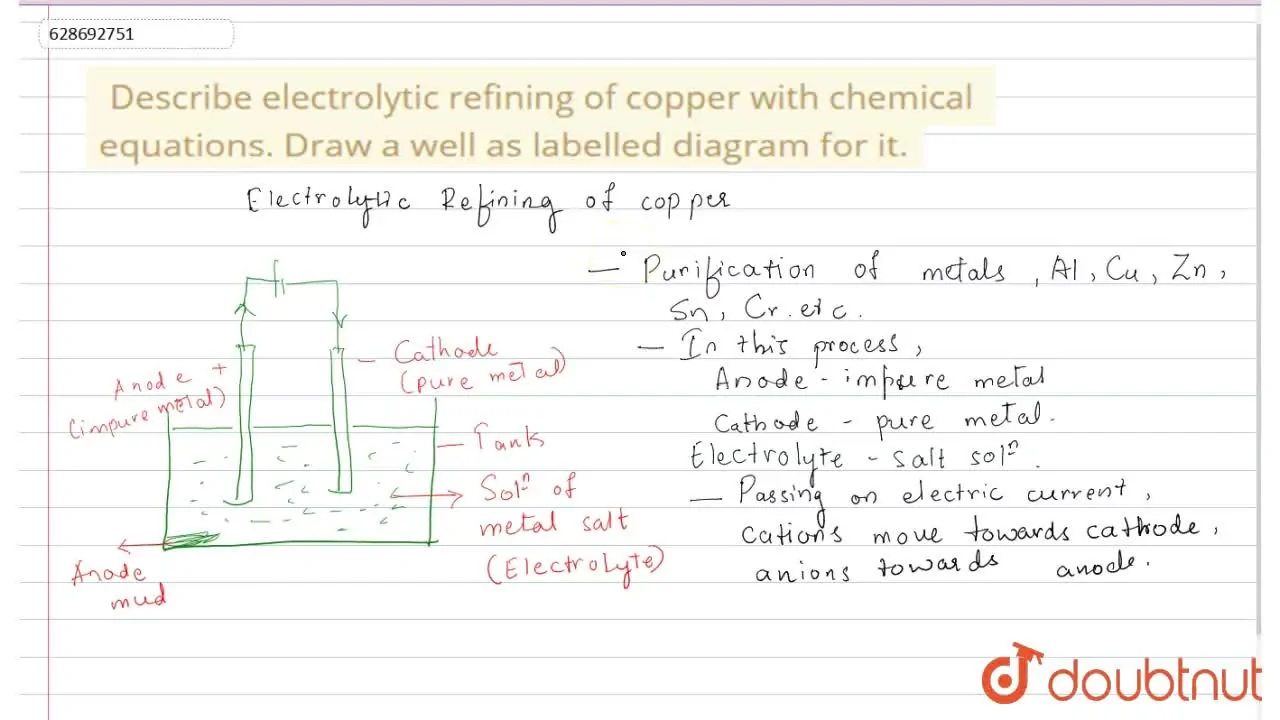 628692751
Describe electrolytic refining of copper with chemical
equations. Draw a well as labelled diagram for it.
Electrolytic Refining of copper
— Purification of metals, Al, Cu, Zn,
Sn, Cr. etc.
— In this process,
Anode - impure metal
Cathode - pure metal.
Electrolyte - salt solⁿ.
— Passing on electric current,
cations move towards cathode,
anions towards anode.
Anode +
(impure metal)
— Cathode
(pure metal)
— Tank
Solⁿ of
metal salt
(Electrolyte)
Anode
mud
doubtnut